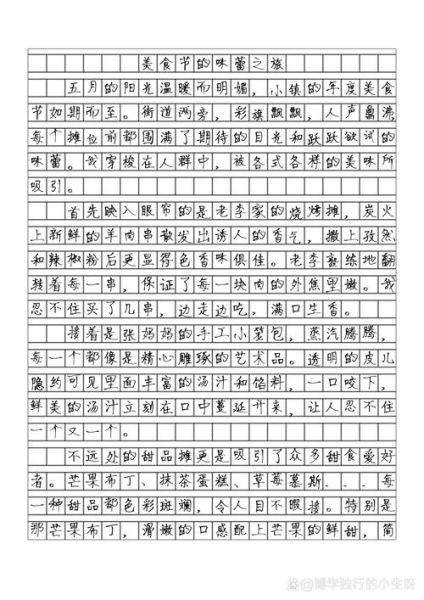 美食节的味蕾之旅
五月的阳光温暖而明媚，小镇的年度美食
节如期而至。街道两旁，彩旗飘飘，人声鼎沸，
每个摊位前都围满了期待的目光和跃跃欲试的
味蕾。我穿梭在人群中，被各式各样的美味所
吸引。
首先映入眼帘的是老李家的烧烤摊，炭火
上新鲜的羊肉串散发出诱人的香气，撒上孜然
和辣椒粉后更显得色香味俱佳。老李熟练地翻
转着每一串，保证了每一块肉的外焦里嫩。我
忍不住买了几串，边走边吃，满口生香。
接着是张妈妈的手工小笼包，蒸汽腾腾，
每一个都像是精心雕琢的艺术品。透明的皮儿
隐约可见里面丰富的汤汁和馅料，一口咬下，
鲜美的汤汁立刻在口中蔓延开来，让人忍不住
一个又一个。
不远处的甜品摊更是吸引了众多甜食爱好
者。芒果布丁、抹茶蛋糕、草莓慕斯...每
一种甜品都色彩斑斓，令人目不暇接。特别是
那芒果布丁，滑嫩的口感配上芒果的鲜甜，简
@博学独行的小生呀